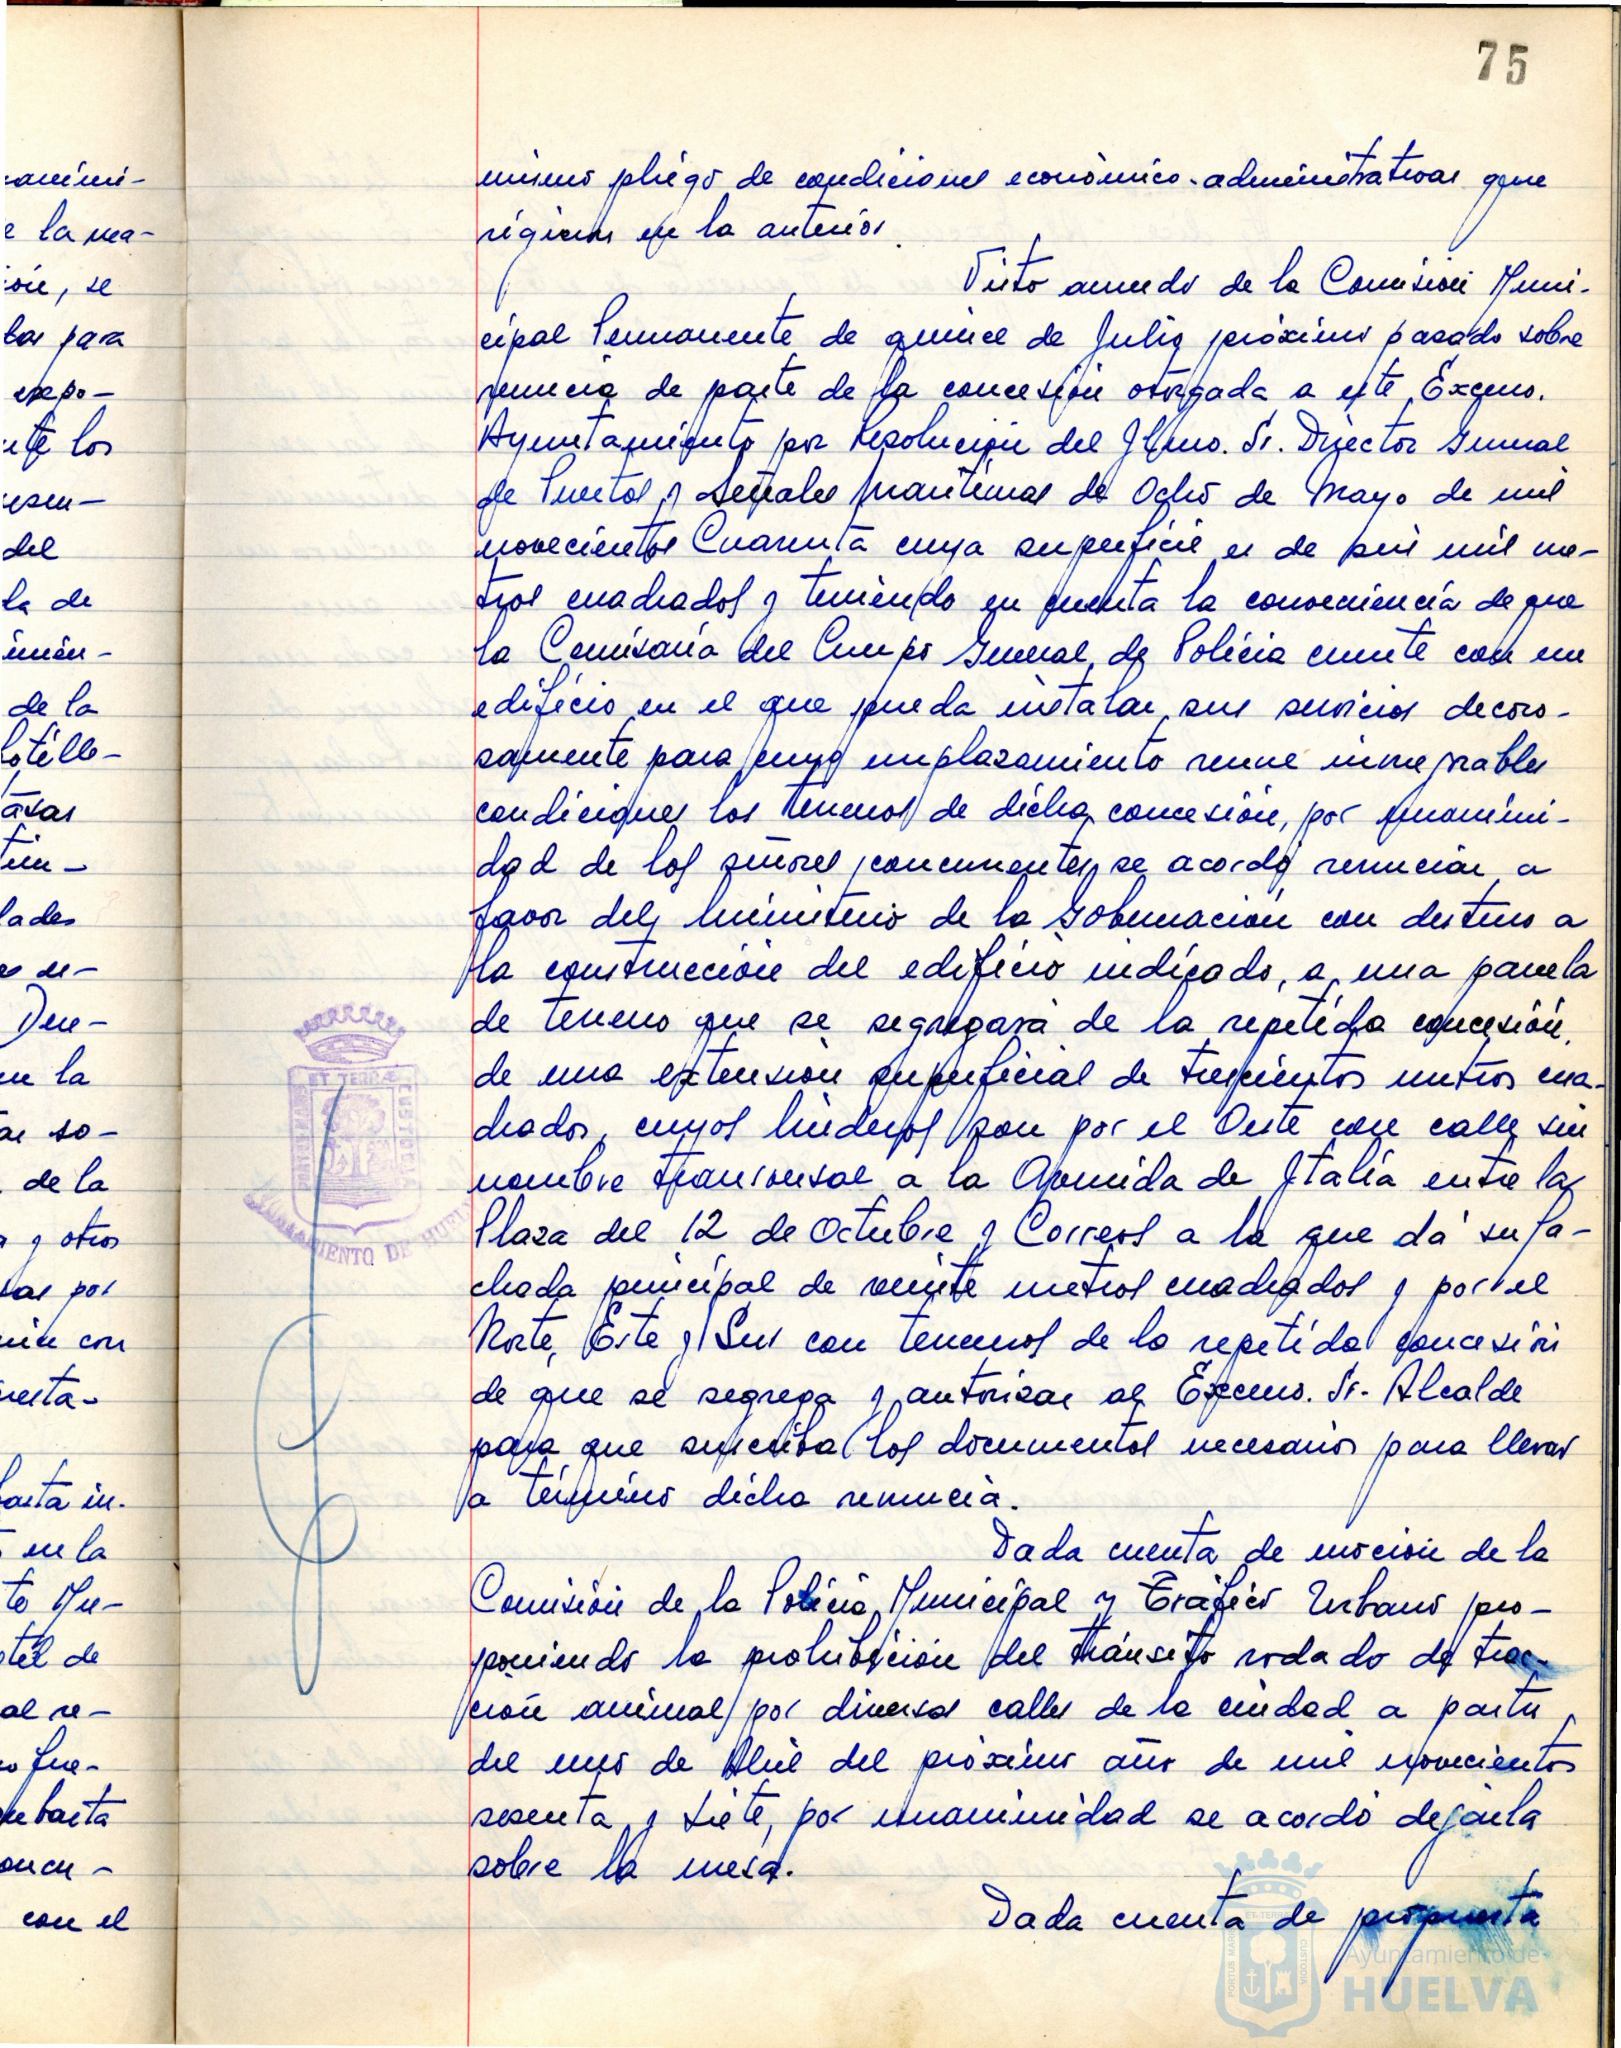 75
mismo pliego de condiciones económico-administrativas que
rigieron en la anterior.
Visto acuerdo de la Comisión Muni-
cipal Permanente de quince de Julio próximo pasado sobre
renuncia de parte de la concesión otorgada a este Excmo.
Ayuntamiento por Resolución del Iltmo. Sr. Director General
de Puertos y Señales Marítimas de Ocho de Mayo de mil
novecientos Cuarenta cuya superficie es de seis mil me-
tros cuadrados y teniendo en cuenta la conveniencia de que
la Comisaría del Cuerpo General de Policía cuente con un
edificio en el que pueda instalar sus servicios decoro-
samente para cuyo emplazamiento reune inmejorables
condiciones los terrenos de dicha concesión, por unanimi-
dad de los señores concurrentes se acordó renunciar a
favor del Ministerio de la Gobernación con destino a
la construcción del edificio indicado, a una parcela
de terreno que se segregará de la repetida concesión,
de una extensión superficial de trescientos metros cua-
drados, cuyos linderos son por el Oeste con calle sin
nombre transversal a la Avenida de Italia entre la
Plaza del 12 de Octubre y Correos a la que dá su fa-
chada principal de veinte metros cuadrados y por el
Norte, Este y Sur con terrenos de la repetida concesión
de que se segrega y autorizar al Excmo. Sr. Alcalde
para que suscriba los documentos necesarios para llevar
a término dicha renuncia.
Dada cuenta de moción de la
Comisión de la Policía Municipal y Tráfico Urbano pro-
poniendo la prohibición del tránsito rodado de trac-
ción animal por diversas calles de la ciudad a partir
del uno de Abril del próximo año de mil novecientos
sesenta y siete, por unanimidad se acordó dejarla
sobre la mesa.
Dada cuenta de propuesta
ET TERRAE
CUSTODIA
AYUNTAMIENTO DE HUELVA
PORTUS MARIS
ET TERRAE
CUSTODIA
Ayuntamiento de
HUELVA
e la ma-
ión, se
las para
expo-
nte los
del
la de
de la
lades
Den-
en la
de la
y otros
por
con
en la
to Mu-
de
al re-
fue-
ubasta
con el